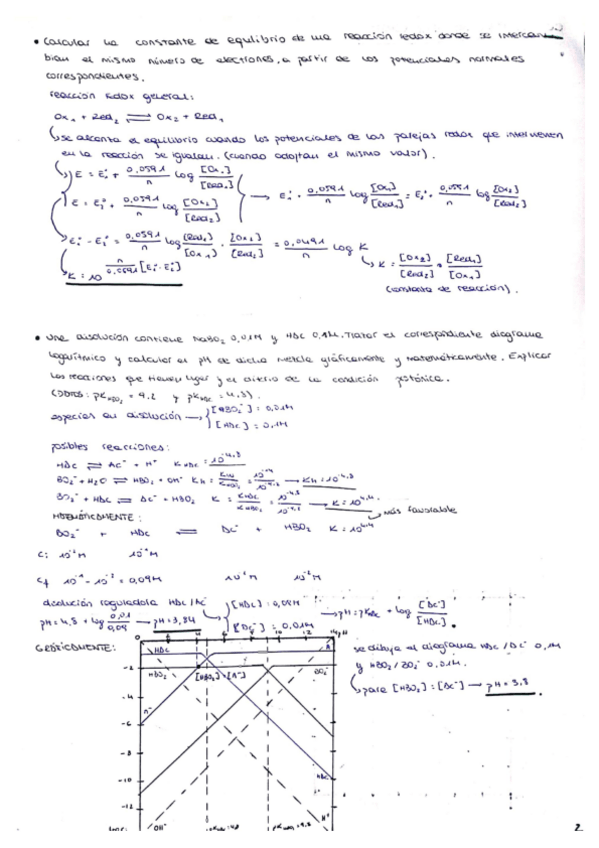 • Calcular la constante de equilibrio de una reacción redox donde se intercam-
bian el mismo número de electrones, a partir de los potenciales normales
correspondientes.
reacción redox general:
Ox₁ + Red₂ ⇌ Ox₂ + Red₁
se alcanza el equilibrio cuando los potenciales de las parejas redox que intervienen
en la reacción se igualan. (cuando adoptan el mismo valor).
E = E₁° + 0,0591/n log [Ox₁]/[Red₁]
E = E₂° + 0,0591/n log [Ox₂]/[Red₂] → E₁° + 0,0591/n log [Ox₁]/[Red₁] = E₂° + 0,0591/n log [Ox₂]/[Red₂]
E₁° - E₂° = 0,0591/n log [Red₁]/[Ox₁] · [Ox₂]/[Red₂] = 0,0591/n log K
K = [Ox₂]/[Red₂] · [Red₁]/[Ox₁]
K = 10^(n/0,0591 [E₁° - E₂°])
(constante de reacción).
• Una disolución contiene NaBO₂ 0,01M y HAc 0,1M. Trazar el correspondiente diagrama
logarítmico y calcular el pH de dicha mezcla gráficamente y matemáticamente. Explicar
las reacciones que tienen lugar y el criterio de la condición protónica.
(DATOS: pK HBO₂ = 9,2 y pK HAc = 4,8).
especies en disolución → [BO₂⁻] = 0,01M
[HAc] = 0,1M
posibles reacciones:
HAc ⇌ Ac⁻ + H⁺ K HAc = 10⁻⁴·⁸
BO₂⁻ + H₂O ⇌ HBO₂ + OH⁻ KH = KW/K HBO₂ = 10⁻¹⁴/10⁻⁹·² → KH = 10⁻⁴·⁸
BO₂⁻ + HAc ⇌ Ac⁻ + HBO₂ K = K HAc/K HBO₂ = 10⁻⁴·⁸/10⁻⁹·² → K = 10⁴·⁴
más favorable
MATEMÁTICAMENTE:
BO₂⁻ + HAc ⇌ Ac⁻ + HBO₂ K = 10⁴·⁴
Ci 10⁻² M 10⁻¹ M
Cf 10⁻¹ - 10⁻² = 0,09M 10⁻² M 10⁻² M
disolución reguladora HAc/Ac⁻ [HAc] = 0,09M → pH = pK HAc + log [Ac⁻]/[HAc].
pH = 4,8 + log 0,01/0,09 → pH = 3,84 [Ac⁻] = 0,01M
GRÁFICAMENTE:
se dibuja el diagrama HAc/Ac⁻ 0,1M
y HBO₂/BO₂⁻ 0,01M.
para [HBO₂] = [Ac⁻] → pH = 3,8.
0 2 4 6 8 10 12
HAc
-2
HBO₂
[HBO₂] = [A⁻]
BO₂⁻
-4
-6
-8
-10
HAc
-12
OH⁻
H⁺
2